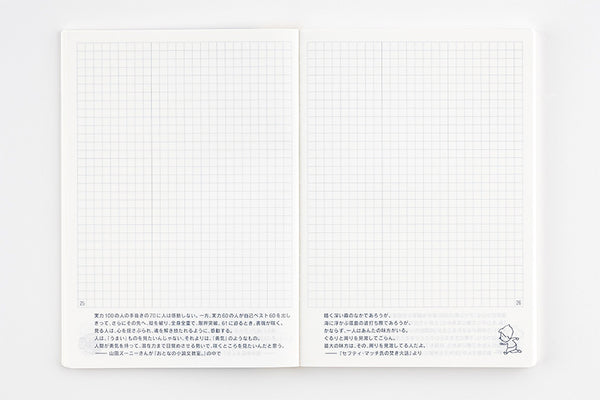 25
実力100の人の手抜きの70に人は感動しない。一方、実力60の人が自己ベスト60を出し
きって、さらにその先へ、殻を破り、全身全霊で、限界突破、61に迫るとき、表現が輝く。
見る人は、心を揺さぶられ、魂を解き放たれるように、感動する。
人は、「うまい」ものを見たいんじゃない、それよりは、「勇気」のようなもの。
人間が勇気を持って、潜在力まで目覚めさせる勢いで、咲くところを見たいんだと思う。
―― 山田ズーニーさんが『おとなの小論文教室。』の中で
26
暗く深い森のなかであろうが、
海に浮かぶ孤島の波打ち際であろうが、
かならず、一人はあんたの味方がいる。
ぐるりと周りを見渡してごらん。
最大の味方は、その、周りを見渡してる人だよ。
―― 『セフティ・マッチ氏の焚き火話』より